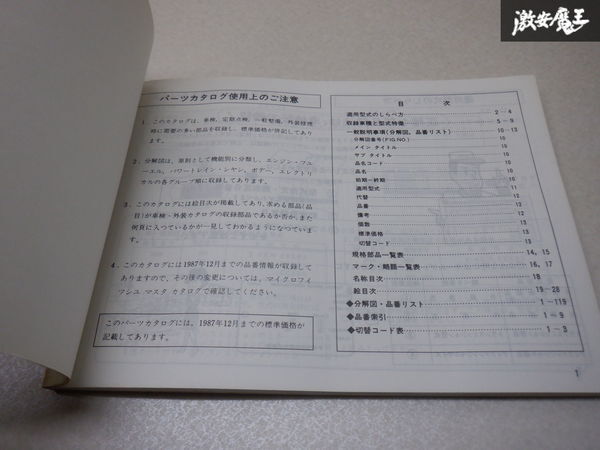 激安魔王
パーツカタログ使用上のご注意
1. このカタログは、車検、定期点検、一般整備、外装修理
時に需要の多い部品を収録し、標準価格が併記してあり
ます。
2. 分解図は、原則として機能別に分類し、エンジン・フュ
ーエル、パワートレイン・シヤシ、ボデー、エレクトリ
カルの各グループ順に収録してあります。
3. このカタログには絵目次が掲載してあり、求める部品(品
目)が車検・外装カタログの収録部品であるか否か、また
何頁に入つているかが一見してわかるようになつていま
す。
4. このカタログには1987年12月までの品番情報が収録して
ありますので、その後の変更については、マイクロフィ
ツシュ マスタ カタログで確認してください。
このパーツカタログには、1987年12月までの標準価格が
記載してあります。
目 次
適用型式のしらべ方 2－4
収録車種と型式特徴 5－9
一般説明事項(分解図、品番リスト) 10－13
分解図番号(FIG.NO.) 10
メイン タイトル 10
サブ タイトル 10
品名コード 10
品名 10
始期－終期 10
適用型式 11
代替 12
品番 12
備考 12
個数 13
標準価格 13
切替コード 13
規格部品一覧表 14, 15
マーク・略語一覧表 16, 17
名称目次 18
絵目次 19－28
◆分解図・品番リスト 1－119
◆品番索引 1－9
◆切替コード表 1－3
1